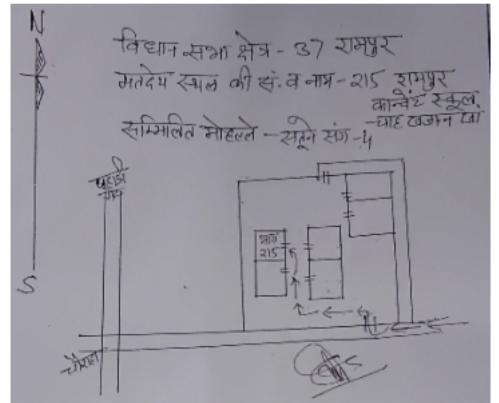 N
विधान सभा क्षेत्र - 37 रामपुर
मतदेय स्थल की सं. व नाम - 215 रामपुर
कान्वेंट स्कूल
चाह खजान खां
सम्मिलित मोहल्ले - सतून संग - 4
पहाड़ी
गेट
भाग
215
S
चौराहा